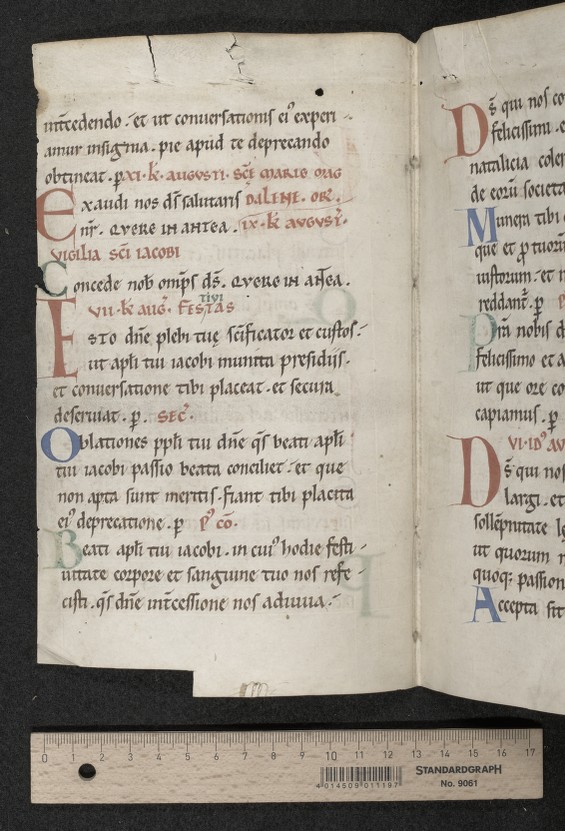 int̄cedendo · et ut conuersationis ei⁹ experi-
amur insignia · pie apud te deprecando
obtineat · p̱ XI · k̄ · AVGVSTI · SCE MARIE MAG
Exaudi nos d̄s salutaris DALENE · OR̄ ·
nr̄ · QVERE IN ANTEA · IX · k̄ AVGVST̄ ·
VIGILIA SCI IACOBI
Concede nob̄ omp̄s d̄s · QVERE IN ANTEA ·
VII · k̄ AVḠ · FESTAS
TIVI
Esto dn̄e plebi tuę sc̄ificator et custos ·
ut apl̄i tui iacobi munita presidiis ·
et conuersatione tibi placeat · et secura
deseruiat · p̱ · SEC̄ ·
Oblationes ppl̄i tui dn̄e q̄s beati apl̄i
tui iacobi passio beata conciliet · et que
non apta sunt meritis · fiant tibi placita
ei⁹ deprecatione · p̱ P̄ CŌ ·
Beati apl̄i tui iacobi · in cui⁹ hodie festi-
uitate corpore et sanguine tuo nos refe-
cisti · q̄s dn̄e int̄cessione nos adiuua ·
D̄s qui nos co
felicissimi · e
natalicia coler
de eorū societa
Munera tibi d
que et p̱ tuorū
iustorum · et n
reddant̄ · p̱
nobis d
felicissimo et a
ut que ore co
capiamus · p̱
VI · ID⁹ AV
D̄s qui nos
largi · et
sollēpnitate
ut quorum
quoq; passion
Accepta sit
0 1 2 3 4 5 6 7 8 9 10 11 12 13 14 15 16 17
4 014509 011197
STANDARDGRAPH
No. 9061